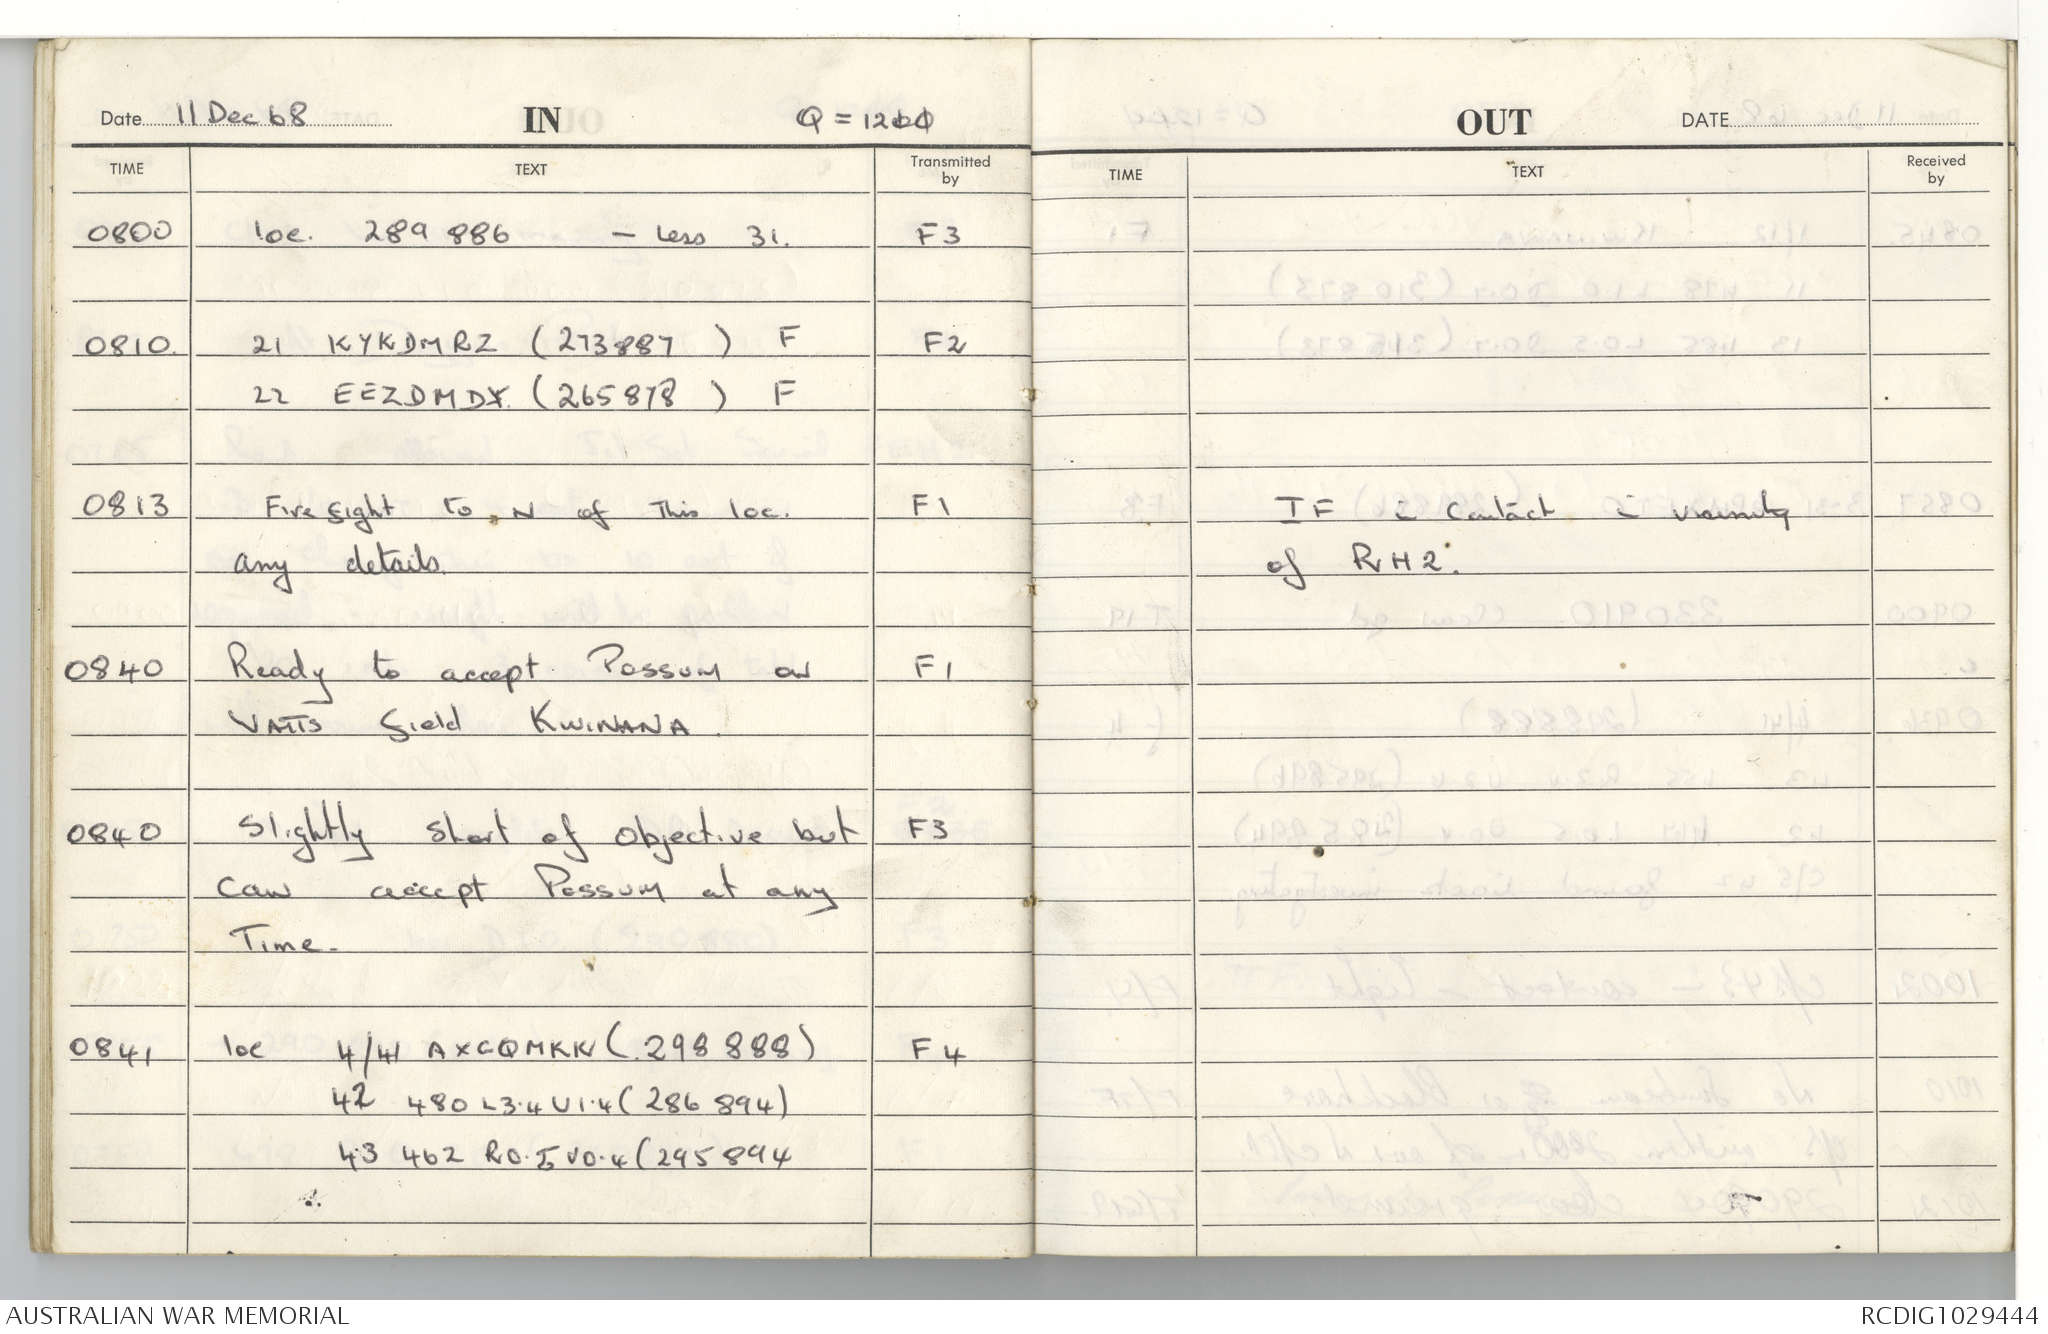 Date 11 Dec 68 IN Q = 1200
TIME TEXT Transmitted by
0800 loc. 289 886 - Less 31. F3
0810. 21 KYKDMRZ (273887 ) F F2
22 EEZDMDX. (265878 ) F
0813 Fire fight to N of This loc. F1
any details.
0840 Ready to accept Possum on F1
VATTS field KWINANA.
0840 Slightly short of objective but F3
can accept Possum at any
Time.
0841 loc 4/41 AXCQMKK (298 888) F4
42 480 L3.4 U1.4 (286 894)
43 462 R0.5 U0.4 (295 894
OUT DATE
TIME TEXT Received by
IF in contact in vicinity
of RH2.
AUSTRALIAN WAR MEMORIAL RCDIG1029444